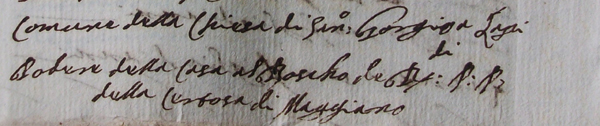 Comune della Chiesa di San: Giorgio a Lapi
di
Podere della Casa al Boscho de RR: P: P:
della Certosa di Maggiano